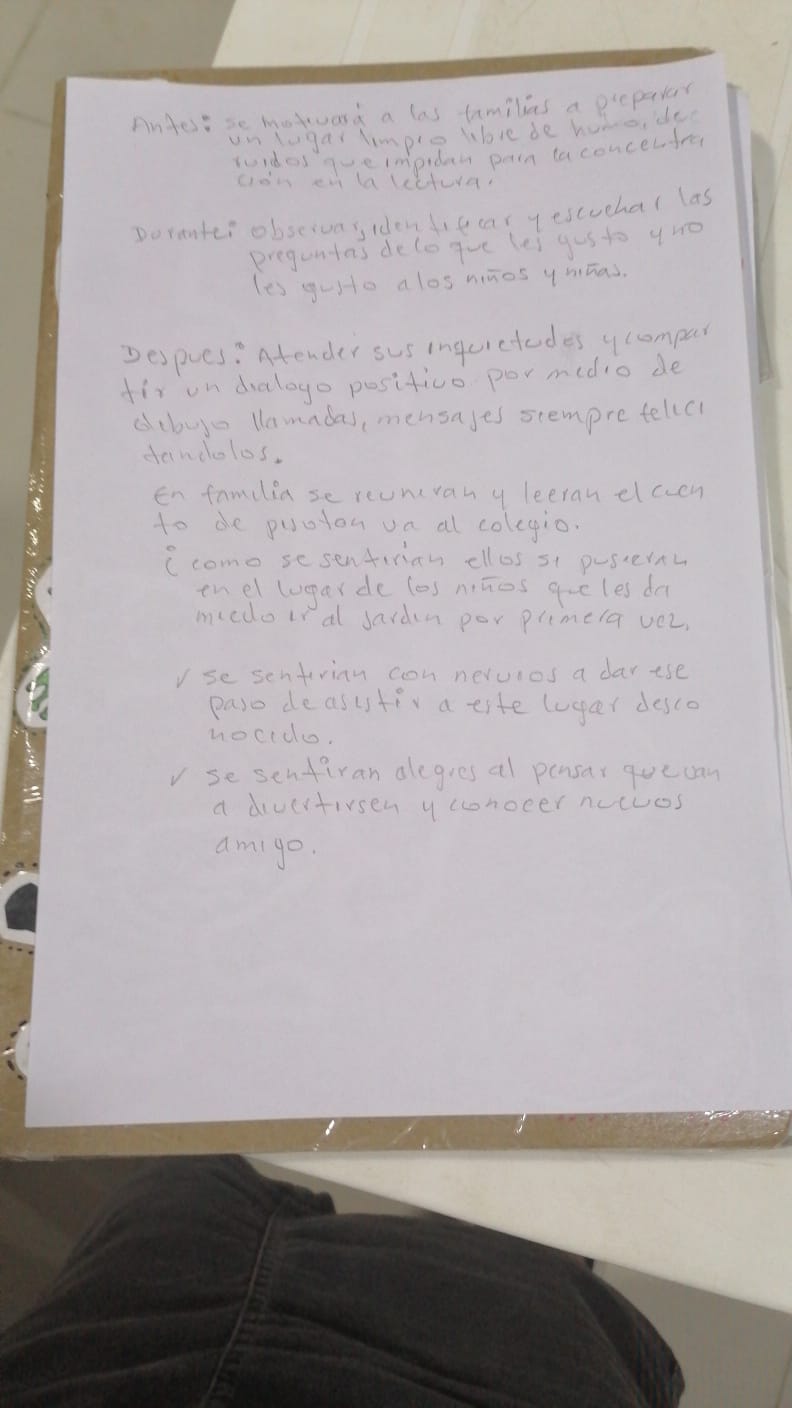 Antes: se motivará a las familias a preparar
un lugar limpio libre de humo, de
ruidos que impidan para la concentra
ción en la lectura.
Durante: observar, identificar y escuchar las
preguntas de lo que les gusto y no
les gusto a los niños y niñas.
Despues: Atender sus inquietudes y compar
tir un dialogo positivo por medio de
dibujo llamadas, mensajes siempre felici
tandolos.
En familia se reuniran y leeran el cuen
to de va al colegio.
¿como se sentirian ellos si pusieran
en el lugar de los niños que les da
miedo ir al jardin por primera vez.
✓ se sentirian con nervios a dar ese
paso de asistir a este lugar desco
nocido.
✓ se sentiran alegres al pensar que van
a divertirsen y conocer nuevos
amigo.